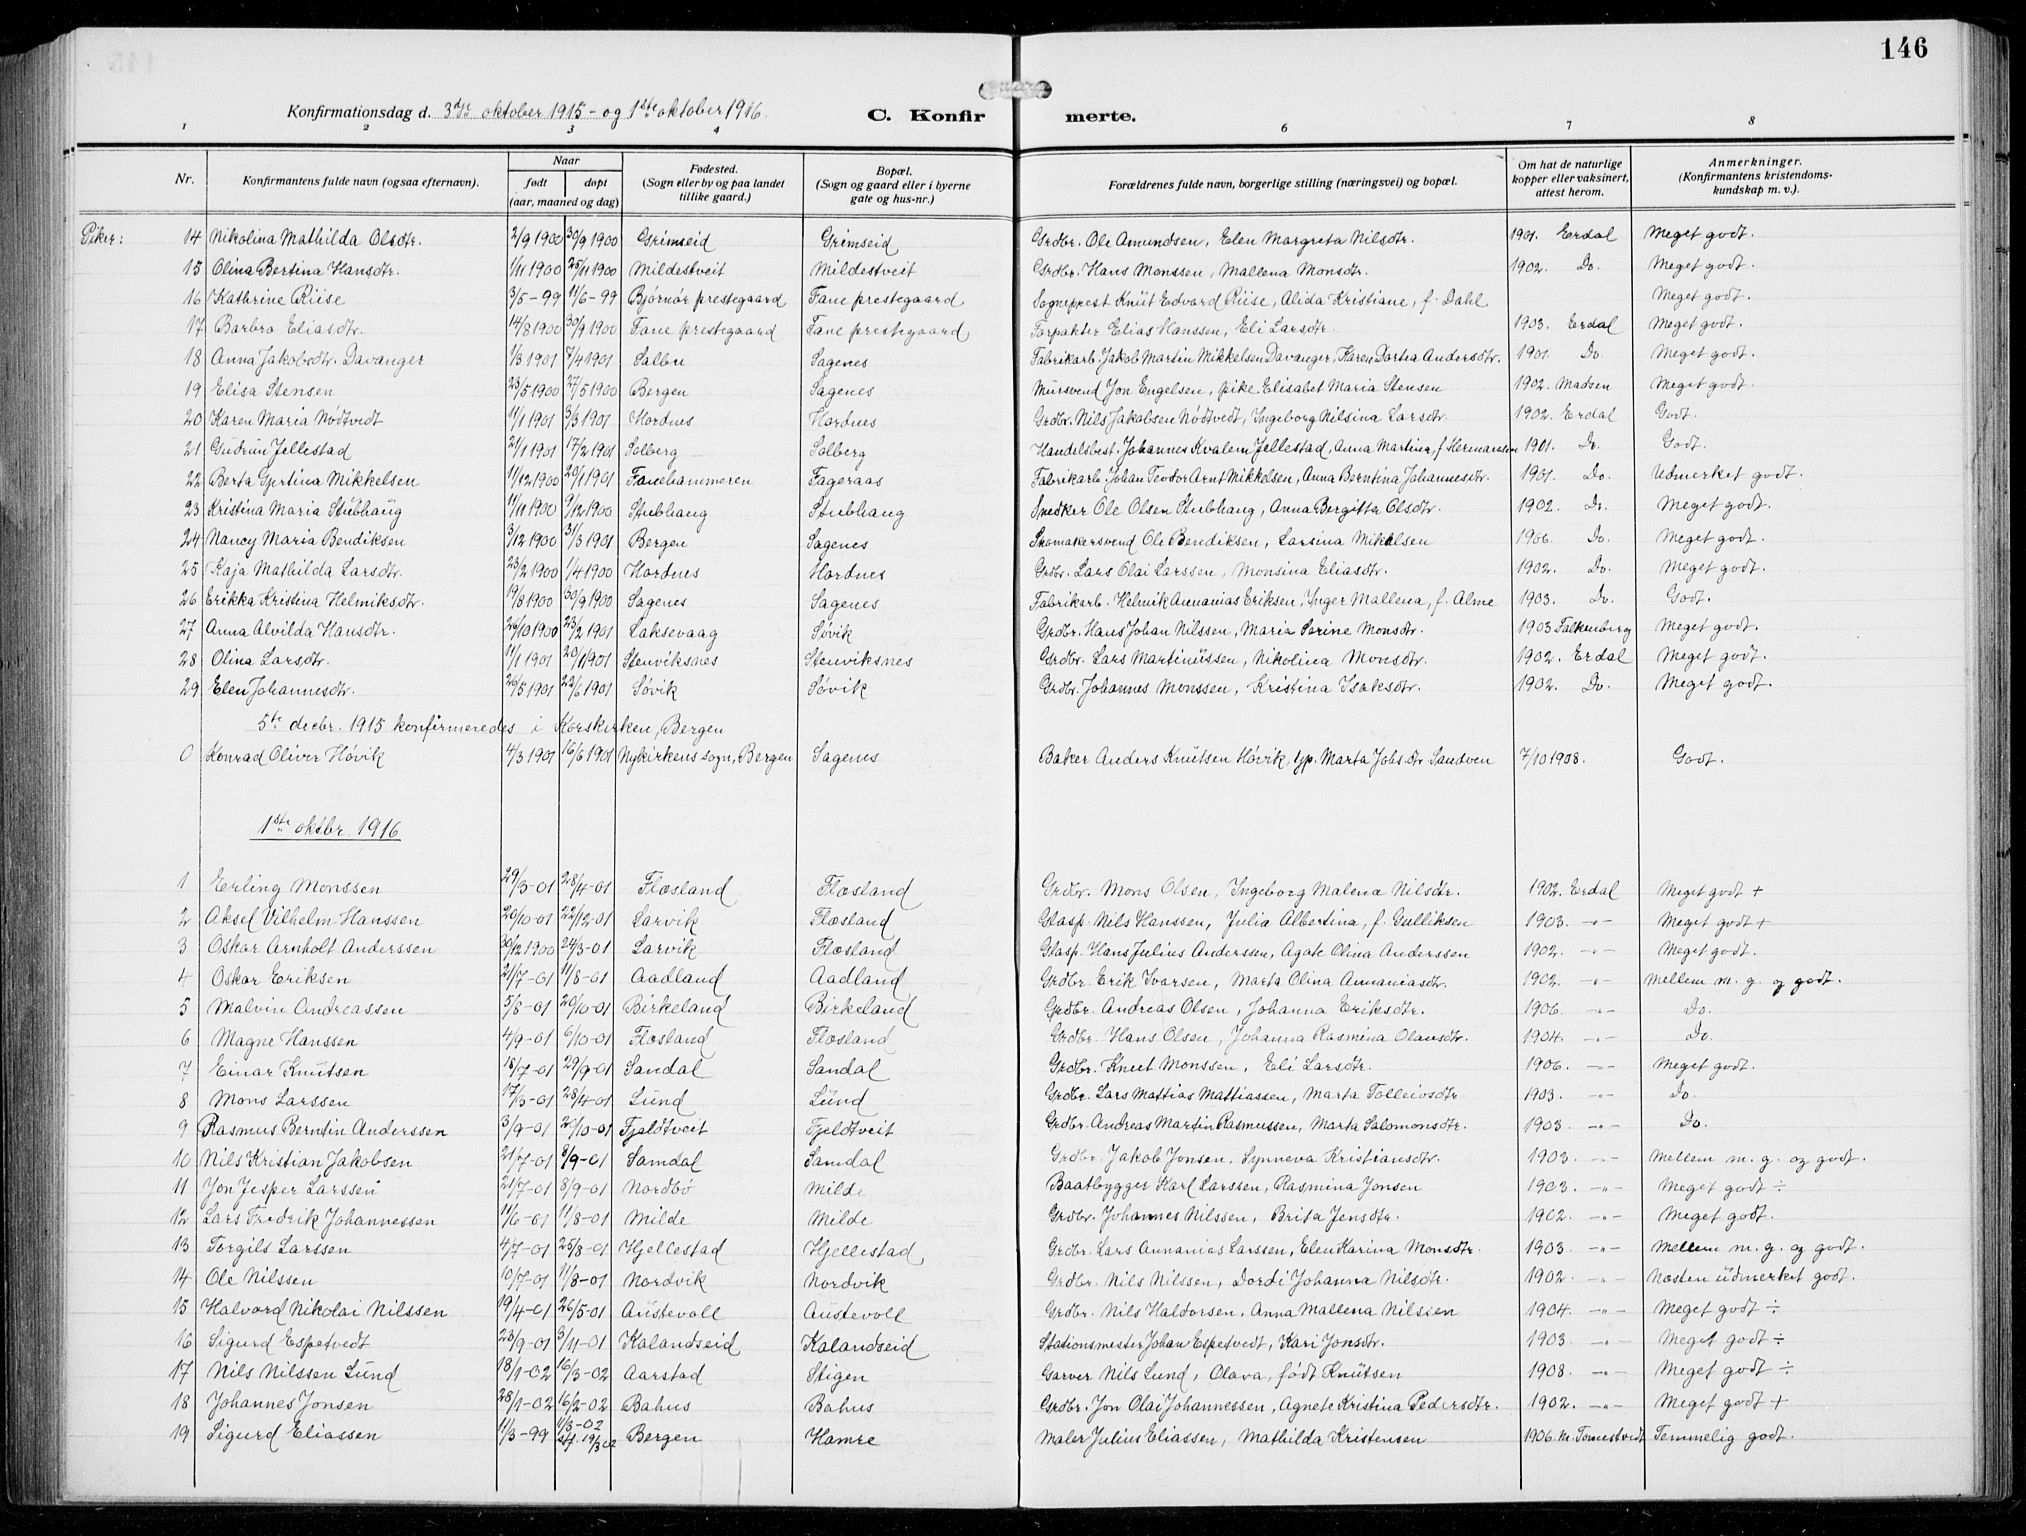 146
Konfirmationsdag d. 3dje oktober 1915 - og 1ste oktober 1916.
C. Konfir merte.
1 2 3 4 6 7 8
Nr. Konfirmantens fulde navn (ogsaa efternavn). Naar født døpt (aar, maaned og dag) Fødested. (Sogn eller by og paa landet tillike gaard.) Bopæl. (Sogn og gaard eller i byerne gate og hus-nr.) Forældrenes fulde navn, borgerlige stilling (næringsvei) og bopæl. Om hat de naturlige kopper eller vaksinert, attest herom. Anmerkninger. (Konfirmantens kristendoms-kundskap m. v.).
Piker: 14 Nikolina Mathilda Olsdtr. 2/9 1900 30/9 1900 Grimseid Grimseid Grdbr. Ole Amundsen, Elen Margreta Nilsdtr. 1901. Erdal Meget godt.
15 Olina Bertina Hansdtr. 1/11 1900 25/11 1900 Mildestveit Mildestveit Grdbr. Hans Monssen, Mallena Monsdtr. 1902. Do. Meget godt.
16 Kathrine Riise 3/5-99 11/6-99 Bjørnør prestegaard Fane prestegaard Sogneprest Knut Edvard Riise, Alida Kristiane, f. Dahl Meget godt.
17 Barbro Eliasdtr. 14/8 1900 30/9 1900 Fane prestegaard Fane prestegaard Forpakter Elias Hanssen, Eli Larsdtr. 1903. Erdal Meget godt.
18 Anna Jakobsdtr. Davanger 1/3 1901 7/4 1901 Salbu Sagenes Fabrikarb. Jakob Martin Mikkelsen Davanger, Karen Dortea Andersdtr. 1901. Do. Meget godt.
19 Elisa Stensen 23/5 1900 27/5 1900 Bergen Sagenes Mursvend Jon Engelsen, pike Elisabet Maria Stensen 1902. Madsen Meget godt.
20 Karen Maria Nødtvedt 11/1 1901 3/3 1901 Hordnes Hordnes Grdbr. Nils Jakobsen Nødtvedt, Ingeborg Nilsina Larsdtr. 1902. Erdal Godt.
21 Gudrun Jellestad 21/1 1901 17/2 1901 Solberg Solberg Handelsbest. Johannes Kvalem Jellestad, Anna Martina, f. Hermansen 1901. Do. Godt.
22 Berta Gjertina Mikkelsen 11/12 1900 20/1 1901 Fanehammeren Fageraas Fabrikarb. Johan Teodor Arnt Mikkelsen, Anna Berntina Johannesdtr. 1901. Do. Udmerket godt.
23 Kristina Maria Stubhaug 11/11 1900 9/12 1900 Stubhaug Stubhaug Snedker Ole Olsen Stubhaug, Anna Bergitta Olsdtr. 1902. Do. Meget godt.
24 Nancy Maria Bendiksen 3/12 1900 31/3 1901 Bergen Sagenes Skomakersvend Ole Bendiksen, Larsina Mikkelsen 1906. Do. Meget godt.
25 Kaja Mathilda Larsdtr. 23/2 1900 1/4 1900 Hordnes Hordnes Grdbr. Lars Olai Larssen, Monsina Eliasdtr. 1902. Do. Meget godt.
26 Erikka Kristina Helmiksdtr. 19/8 1900 30/9 1900 Sagenes Sagenes Fabrikarb. Helmik Annanias Eriksen, Inger Mallena, f. Alme 1903. Do. Godt.
27 Anna Alvilda Hansdtr. 26/10 1900 23/2 1901 Laksevaag Søvik Grdbr. Hans Johan Nilssen, Maria Serine Monsdtr. 1903 Falkenberg Meget godt.
28 Olina Larsdtr. 11/1 1901 20/1 1901 Stenviksnes Stenviksnes Grdbr. Lars Martinussen, Nikolina Monsdtr. 1902. Erdal Meget godt.
29 Elen Johannesdtr. 26/5 1901 22/6 1901 Søvik Søvik Grdbr. Johannes Monssen, Kristina Isaksdtr. 1902. Do. Meget godt.
5te decbr. 1915 konfirmeredes i Korskirken, Bergen
0 Konrad Oliver Høvik 4/3 1901 16/6 1901 Nykirkens sogn, Bergen Sagenes Baker Anders Knutsen Høvik, Marta Johs.dtr Sandven 7/10 1908. Godt.
1ste oktbr. 1916
1 Erling Monssen 29/3-01 28/4-01 Flesland Flesland Grdbr. Mons Olsen, Ingeborg Malena Nilsdtr. 1902. Erdal Meget godt +
2 Aksel Vilhelm Hanssen 20/10-01 22/12-01 Larvik Flesland Glasp. Nils Hanssen, Julia Albertina, f. Gulliksen 1903. -"- Meget godt +
3 Oskar Arnholt Anderssen 30/12 1900 24/3-01 Larvik Flesland Glasp. Hans Julius Anderssen, Agate Olina Anderssen 1902. -"- Meget godt.
4 Oskar Eriksen 21/7-01 11/8-01 Aadland Aadland Grdbr. Erik Ivarsen, Marta Olina Annaniasdtr. 1902. -"- Mellem m. g. og godt.
5 Malvin Andreassen 5/8-01 20/10-01 Birkeland Birkeland Grdbr. Andreas Olsen, Johanna Eriksdtr. 1906. -"- Do.
6 Magne Hanssen 4/9-01 6/10-01 Flesland Flesland Grdbr. Hans Olsen, Johanna Rasmina Olausdtr. 1904. -"- Do.
7 Einar Knutsen 18/7-01 29/9-01 Sandal Sandal Grdbr. Knut Monssen, Eli Larsdtr. 1906. -"- Meget godt.
8 Mons Larssen 17/3-01 28/4-01 Lund Lund Grdbr. Lars Mattias Mattiassen, Marta Tolleivsdtr 1903. -"- Do.
9 Rasmus Berntin Anderssen 3/9-01 20/10-01 Fjeldtveit Fjeldtveit Grdbr. Andreas Martin Rasmussen, Marta Salomonsdtr. 1903. -"- Do.
10 Nils Kristian Jakobsen 21/7-01 8/9-01 Samdal Samdal Grdbr. Jakob Jonsen, Synneva Kristiansdtr. 1903. -"- Mellem m. g. og godt.
11 Jon Jesper Larssen 21/7-01 8/9-01 Nordbø Milde Baatbygger Karl Larssen, Rasmina Jonsen 1903. -"- Meget godt ÷
12 Lars Fredrik Johannessen 11/6-01 11/8-01 Milde Milde Grdbr. Johannes Nilssen, Brita Jensdtr. 1902. -"- Meget godt.
13 Torgils Larssen 4/7-01 25/8-01 Hjellestad Hjellestad Grdbr. Lars Annanias Larssen, Elen Karina Monsdtr. 1903. -"- Mellem m. g. og godt.
14 Ole Nilssen 10/7-01 11/8-01 Nordvik Nordvik Grdbr. Nils Nilssen, Dordi Johanna Nilsdtr. 1902. -"- Næsten udmerket godt.
15 Halvard Nikolai Nilssen 19/4-01 26/5-01 Austevoll Austevoll Grdbr. Nils Haldorsen, Anna Mallena Nilssen 1904. -"- Meget godt ÷
16 Sigurd Espetvedt 23/9-01 3/11-01 Kalandseid Kalandseid Stationsmester Johan Espetvedt, Kari Jonsdtr. 1903. -"- Meget godt ÷
17 Nils Nilssen Lund 18/1-02 16/3-02 Aarstad Stigen Garver Nils Lund, Olava, født Knutsen 1908. -"- Meget godt ÷
18 Johannes Jonsen 28/1-02 16/2-02 Bahus Bahus Grdbr. Jon Olai Johannessen, Agnete Kristina Pedersdtr. 1902. -"- Meget godt +
19 Sigurd Eliassen 11/3-99 1/3-02 19/3 02 Bergen Hamre Maler Julius Eliassen, Mathilda Kristensen 1906. M. Tomestvedt Temmelig godt.